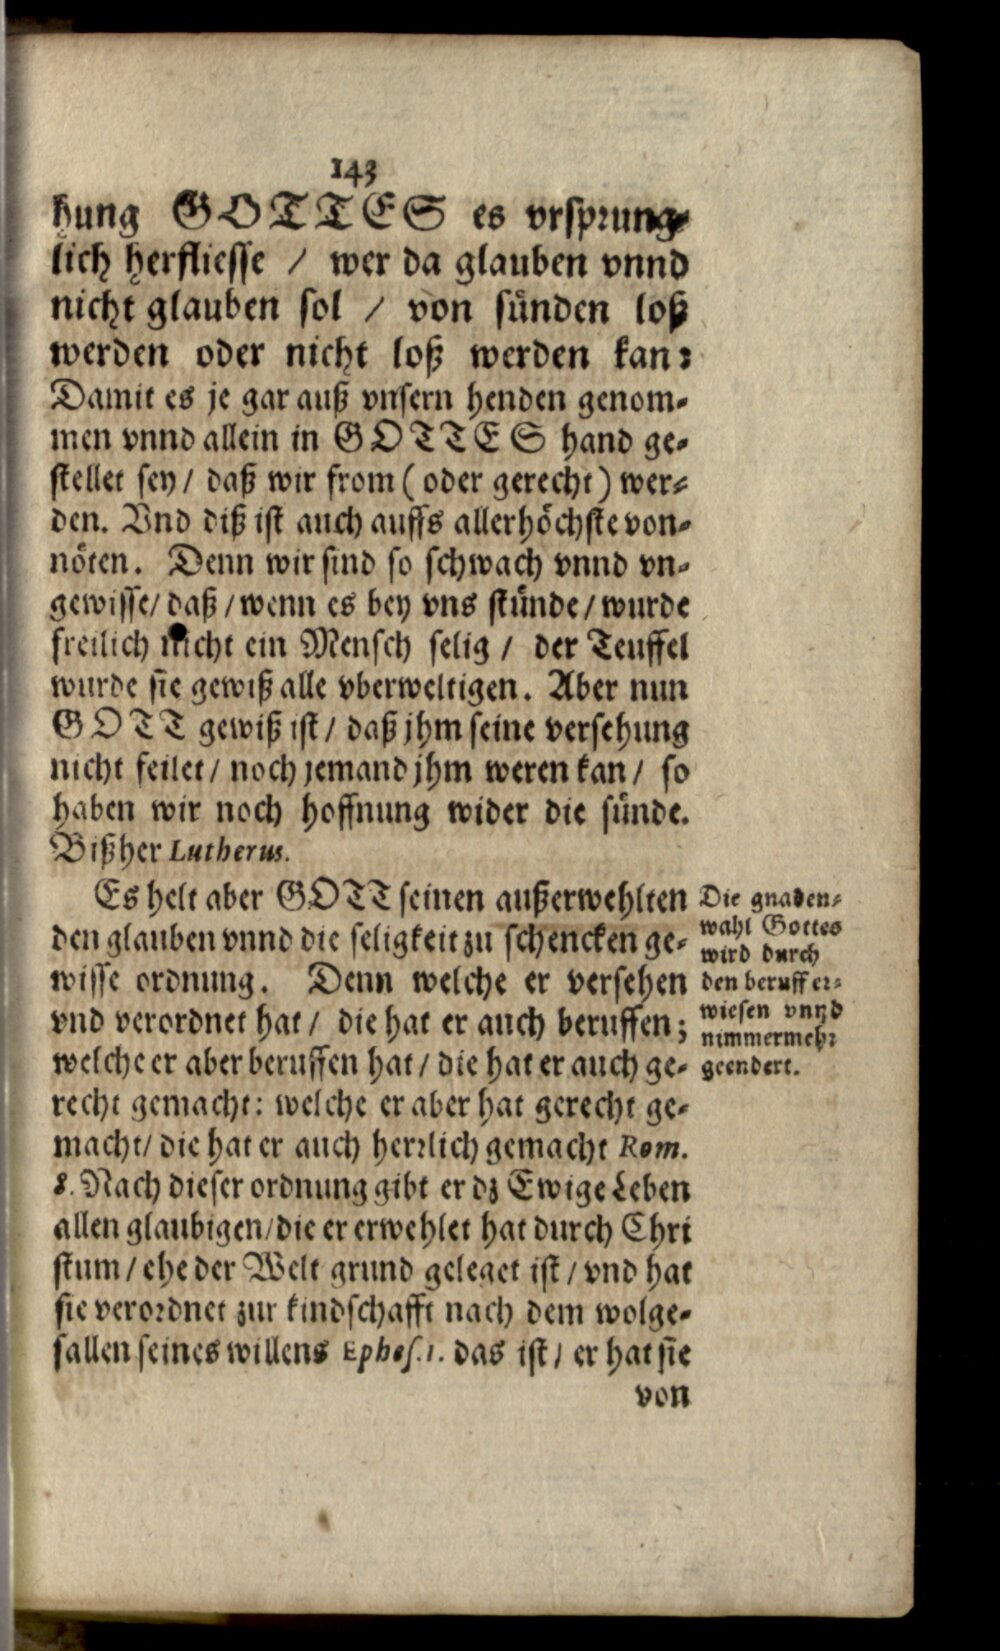 143
hung GOTTES es vrsprung-
lich herfliesse / wer da glauben vnnd
nicht glauben sol / von sünden loß
werden oder nicht loß werden kan:
Damit es je gar auß vnsern henden genom-
men vnnd allein in GOTTES hand ge-
stellet sey / daß wir from ( oder gerecht ) wer-
den. Vnd diß ist auch auffs allerhöchste von-
nöten. Denn wir sind so schwach vnnd vn-
gewisse / daß / wenn es bey vns stünde / wurde
freilich nicht ein Mensch selig / der Teuffel
wurde sie gewiß alle vberweltigen. Aber nun
GOTT gewiß ist / daß jhm seine versehung
nicht feilet / noch jemand jhm weren kan / so
haben wir noch hoffnung wider die sünde.
Bißher Lutherus.
Es helt aber GOTT seinen außerwehlten
den glauben vnnd die seligkeit zu schencken ge-
wisse ordnung. Denn welche er versehen
vnd verordnet hat / die hat er auch beruffen;
welche er aber beruffen hat / die hat er auch ge-
recht gemacht: welche er aber hat gerecht ge-
macht / die hat er auch herrlich gemacht Rom.
8. Nach dieser ordnung gibt er dz Ewige Leben
allen glaubigen / die er erwehlet hat durch Chri
stum / ehe der Welt grund geleget ist / vnd hat
sie verordnet zur kindschafft nach dem wolge-
fallen seines willens Ephes. 1. das ist / er hat sie
von
Die gnaden-
wahl Gottes
wird durch
den beruff er-
wiesen vnnd
nimmermehr
geendert.